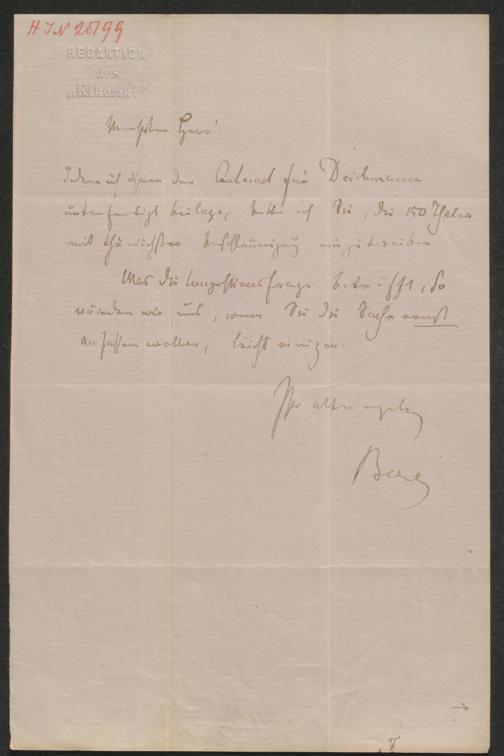 H.I.N 25199
REDAKTION
des
„Kikeriki"
Verehrter Herr!
Indem ich Ihnen den Contract für Deichmann
unterfertigt beilege, bitte ich Sie, die 150 Thaler
mit thunlichster Beschleunigung einzutreiben.
Was die betrifft, so
würden wir uns, wenn Sie die Sache ernst
anfassen wollen, leicht einigen.
Ihr